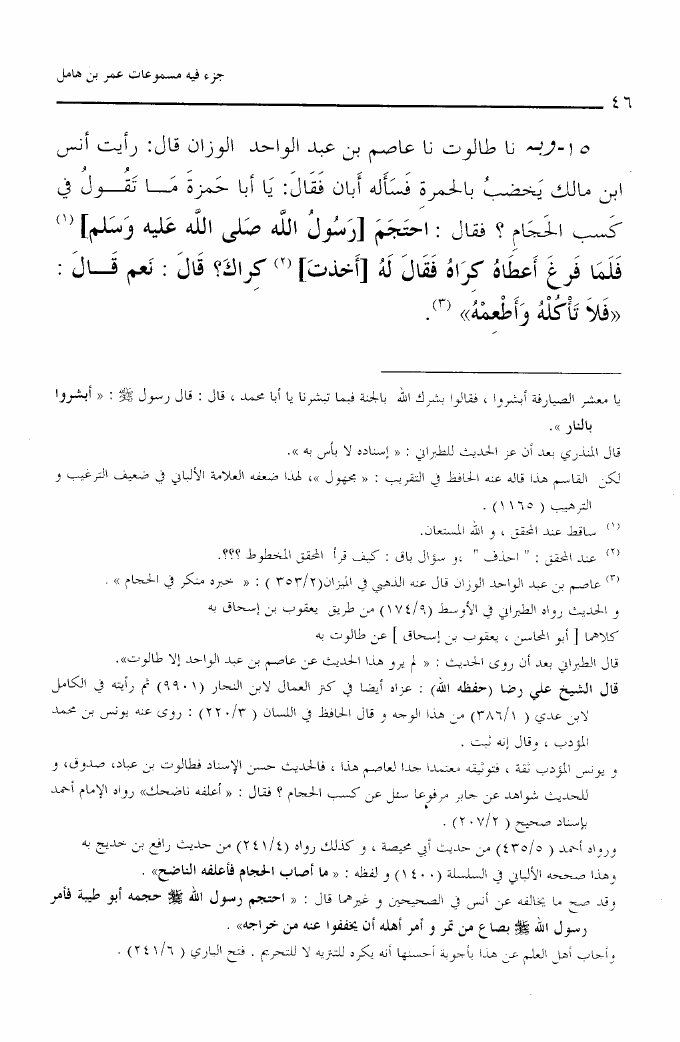 جزء فيه مسموعات عمر بن هامل
٤٦
١٥-وبه نا طالوت نا عاصم بن عبد الواحد الوزان قال: رأيت أنس
ابن مالك يَخضبُ بالحمرة فَسَأَله أبان فَقَالَ: يَا أبا حَمزةَ مَـا تَقُـولُ في
كَسب الحَجَامِ ؟ فقال : احتَجَمَ [رَسُولُ اللَّه صَلى اللَّه عَليه وَسَلم] (١)
فَلَمَا فَرغَ أَعطَاهُ كِرَاهُ فَقَالَ لَهُ [أَخذتَ] (٢) كِراكَ؟ قَالَ : نَعم قَـالَ :
«فَلاَ تَأْكُلْهُ وَأَطْعِمْهُ» (٣).
يا معشر الصيارفة أبشروا ، فقالوا بشرك الله بالجنة فبما تبشرنا يا أبا محمد ، قال : قال رسول ﷺ : « أبشروا
بالنار ».
قال المنذري بعد أن عز الحديث للطبراني : « إسناده لا بأس به ».
لكن القاسم هذا قاله عنه الحافظ في التقريب : « مجهول »، لهذا ضعفه العلامة الألباني في ضعيف الترغيب و
الترهيب ( ١١٦٥ ) .
(١) ساقط عند المحقق ، و الله المستعان.
(٢) عند المحقق : " احذف " ،و سؤال باق : كيف قرأ المحقق المخطوط ؟؟؟.
(٣) عاصم بن عبد الواحد الوزان قال عنه الذهبي في الميزان(٣٥٣/٢ ) : « خبره منكر في الحجام » .
و الحديث رواه الطبراني في الأوسط (١٧٤/٩) من طريق يعقوب بن إسحاق به
كلاهما [ أبو المحاسن ، يعقوب بن إسحاق ] عن طالوت به
قال الطبراني بعد أن روى الحديث : « لم يرو هذا الحديث عن عاصم بن عبد الواحد إلا طالوت».
قال الشيخ علي رضا (حفظه الله) : عزاه أيضا في كنز العمال لابن النجار (٩٩٠١) ثم رأيته في الكامل
لابن عدي ( ٣٨٦/١) من هذا الوجه و قال الحافظ في اللسان ( ٢٢٠/٣) : روى عنه يونس بن محمد
المؤدب ، وقال إنه ثبت .
و يونس المؤدب ثقة ، فتوثيقه معتمدا جدا لعاصم هذا ، فالحديث حسن الإسناد فطالوت بن عباد، صدوق، و
للحديث شواهد عن جابر مرفوعا سئل عن كسب الحجام ؟ فقال : « أعلفه ناضحك» رواه الإمام أحمد
بإسناد صحيح ( ٢٠٧/٢) .
ورواه أحمد ( ٤٣٥/٥) من حديث أبي محيصة ، و كذلك رواه (٢٤١/٤) من حديث رافع بن خديج به
وهذا صححه الألباني في السلسلة (١٤٠٠) و لفظه : « ما أصاب الحجام فأعلفه الناضح» .
وقد صح ما يخالفه عن أنس في الصحيحين و غيرهما قال : « احتجم رسول الله ﷺ حجمه أبو طيبة فأمر
رسول الله ﷺ بصاع من تمر و أمر أهله أن يخففوا عنه من خراجه» .
وأجاب أهل العلم عن هذا بأجوبة أحسنها أنه يكره للتنزيه لا للتحريم . فتح الباري ( ٢٤١/٦) .